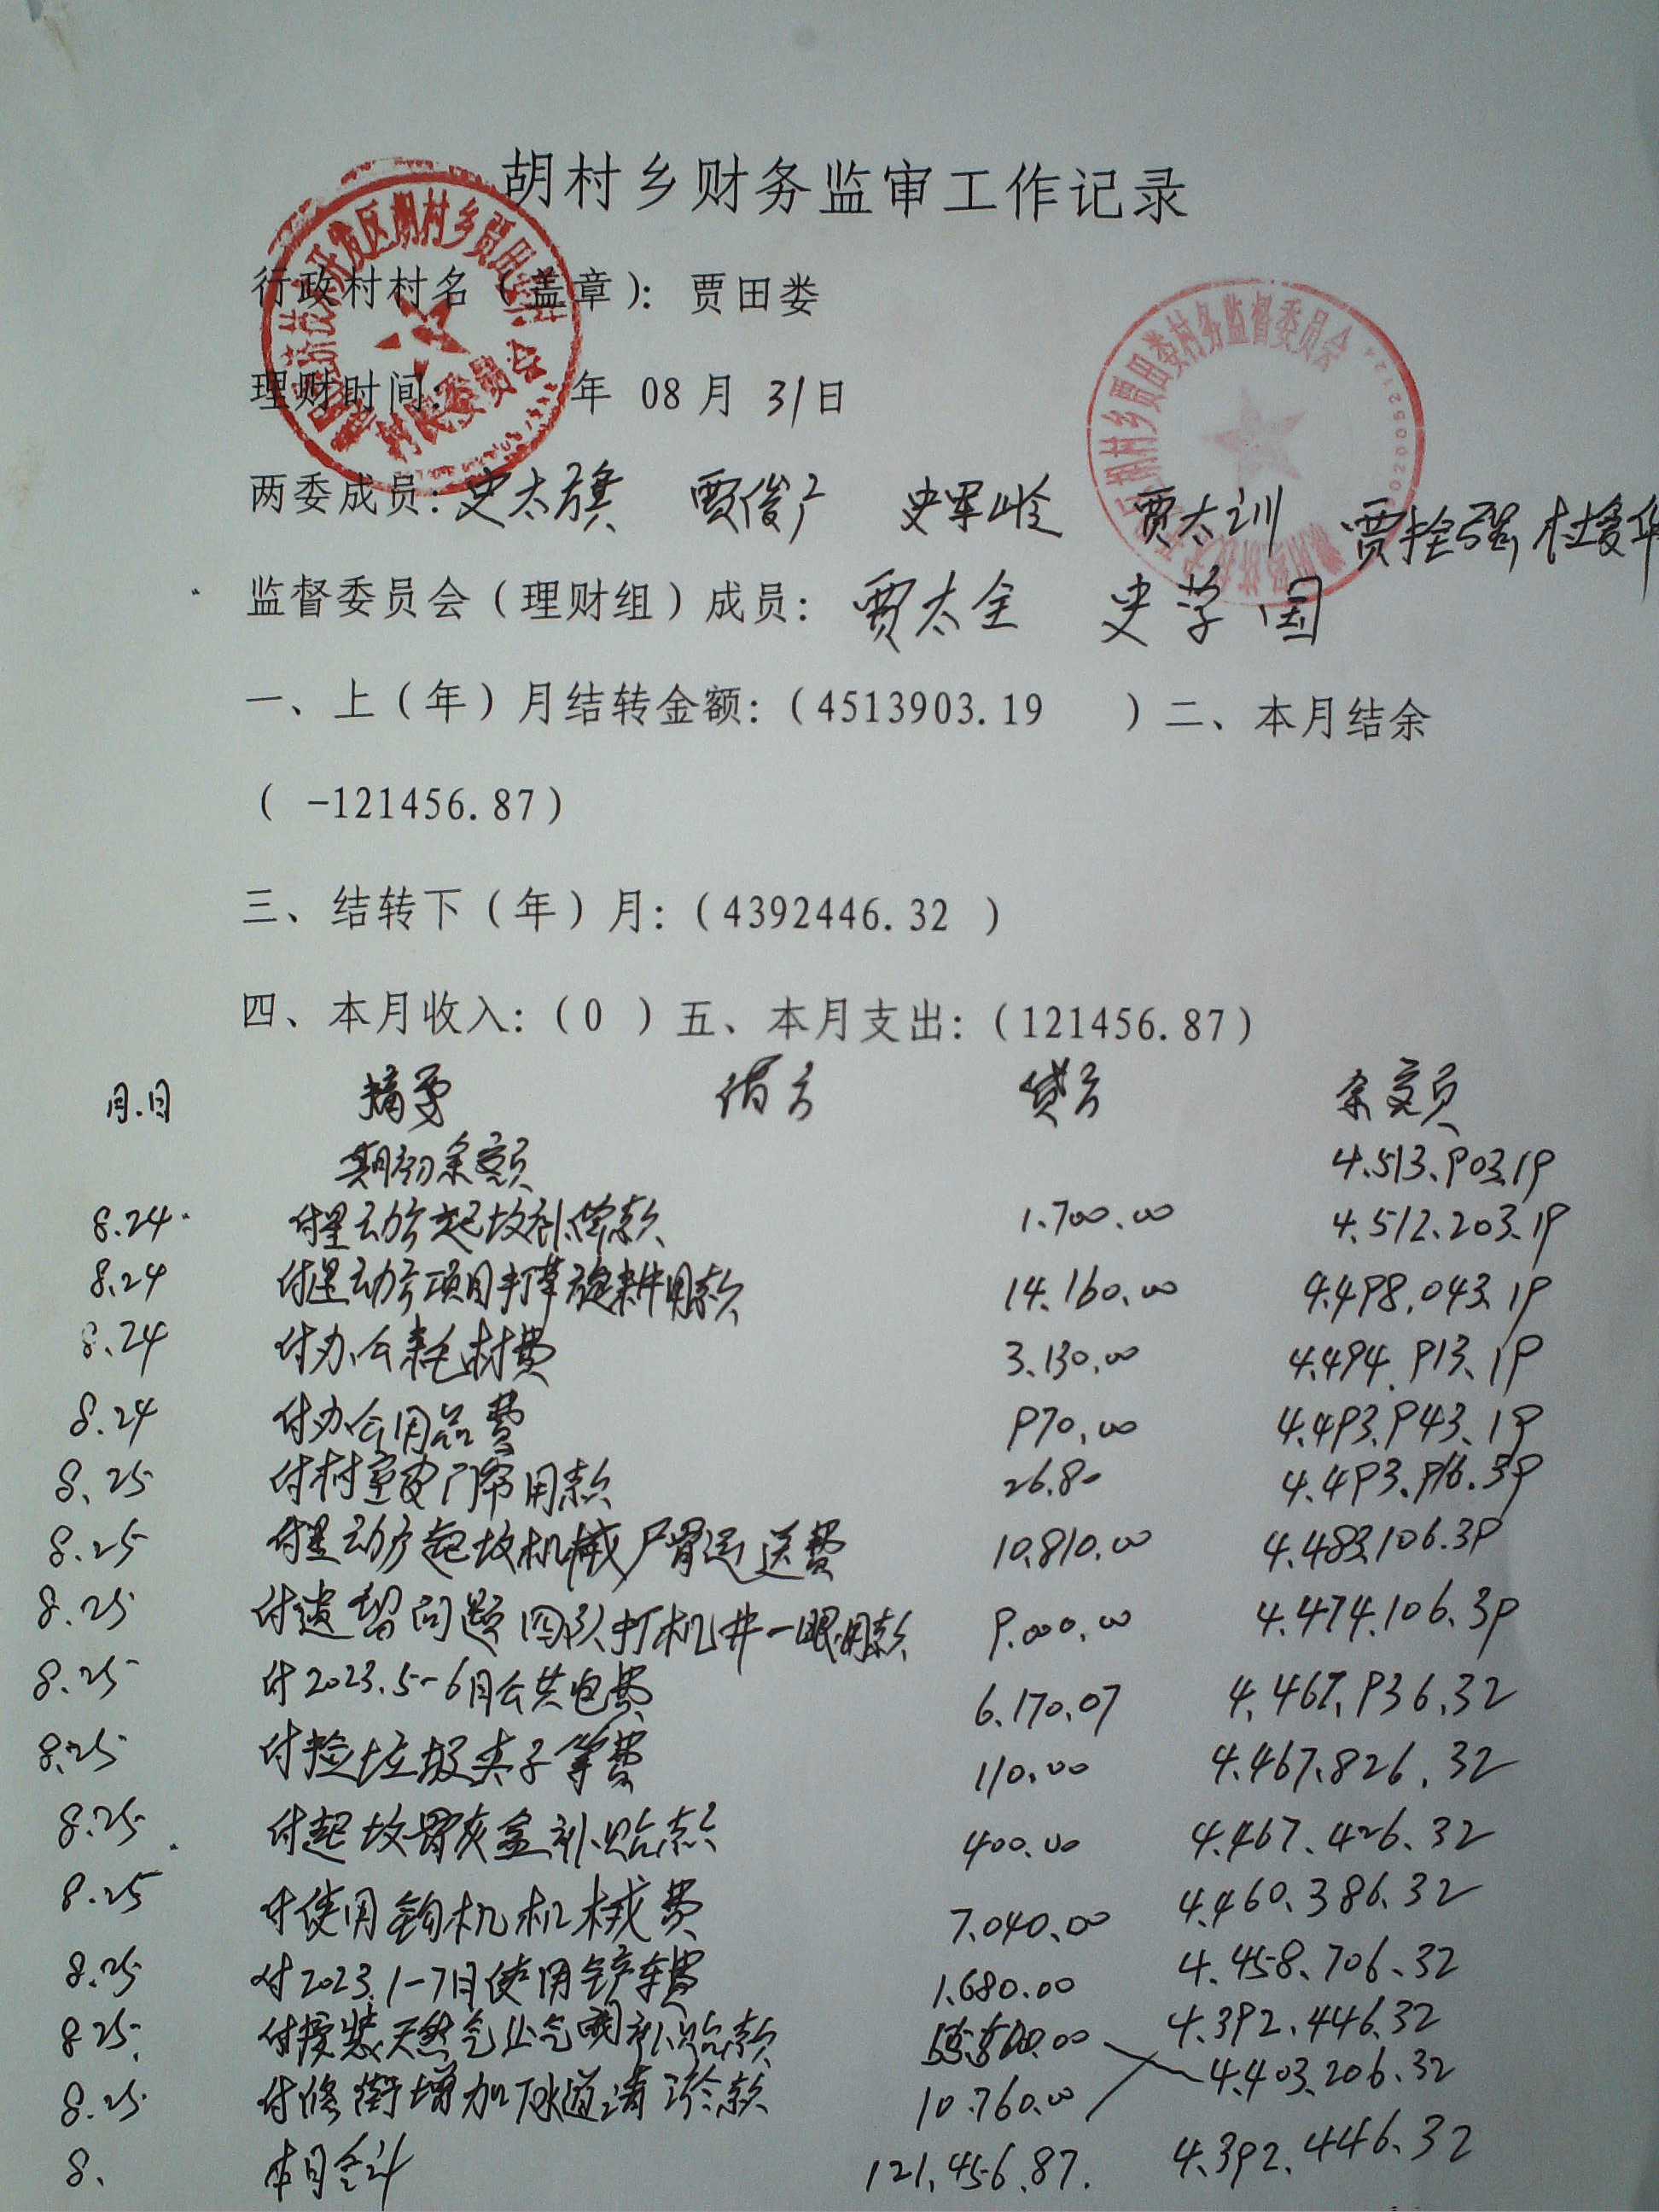 胡村乡财务监审工作记录
行政村村名（盖章）：贾田娄
理财时间： 年 08 月 31日
两委成员：史太旗 贾俊广 史军岭 贾太训 贾拴强 杜爱华
监督委员会（理财组）成员： 贾太全 史学国
一、上（年）月结转金额：（4513903.19 ）二、本月结余
（ -121456.87）
三、结转下（年）月：（4392446.32 ）
四、本月收入：（0 ）五、本月支出：（121456.87）
月.日 摘要 借方 贷方 余额
期初余额 4.513.903.19
8.24 付星动方起坟补偿款 1.700.00 4.512.203.19
8.24 付星动方项目打草旋耕用款 14.160.00 4.498.043.19
8.24 付办公耗材费 3.130.00 4.494.913.19
8.24 付办公用品费 970.00 4.493.943.19
8.25 付村室皮门帘用款 26.80 4.493.916.39
8.25 付星动方起坟机械尸骨运送费 10.810.00 4.483.106.39
8.25 付遗留问题四队打机井一眼用款 9.000.00 4.474.106.39
8.25 付2023.5-6月公共电费 6.170.07 4.467.936.32
8.25 付捡垃圾夹子等费 110.00 4.467.826.32
8.25 付起坟骨灰盒补贴款 400.00 4.467.426.32
8.25 付使用钩机机械费 7.040.00 4.460.386.32
8.25 付2023.1-7月使用铲车费 1.680.00 4.458.706.32
8.25 付按装天然气止气阀补贴款 55.500.00 4.392.446.32
8.25 付修街增加下水道清淤款 10.760.00 4.403.206.32
8. 本月合计 121.456.87. 4.392.446.32